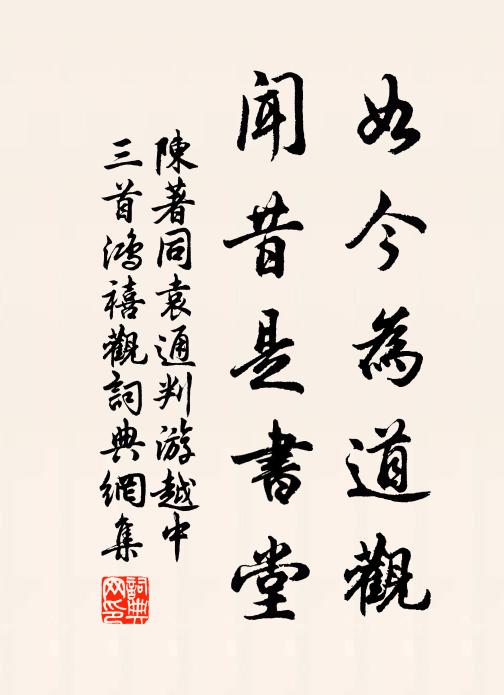 如今為道觀
聞昔是書堂
陳著同袁通判游越中
三首鴻禧觀詞典網集
詞典網印